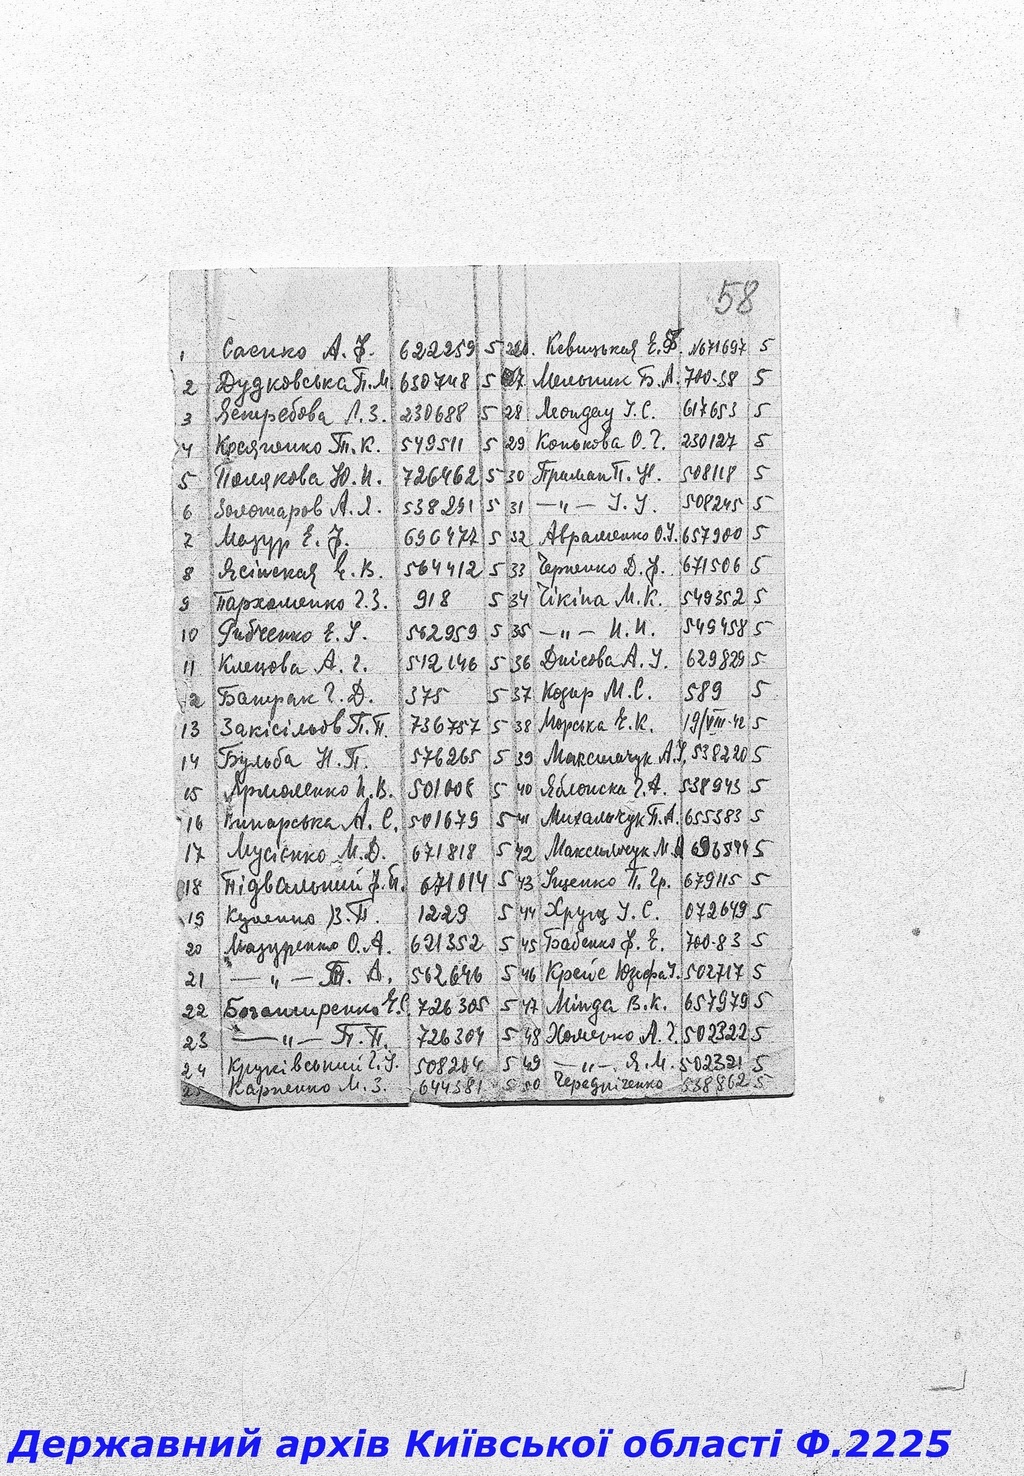 58
1 Саєнко А. Ф. 622259 5
2 Дудковська П.М. 630748 5
3 Ястребова Л. З. 230688 5
4 Т. К. 549511 5
5 Полякова Ю. И. 726462 5
6 Золотаров А. Я. 538291 5
7 Мазур Е. Ф. 696477 5
8 Ясінская Є. В. 564412 5
9 Пархоменко Г. З. 918 5
10 Рябченко Е. І. 562959 5
11 Клецова А. Г. 512146 5
12 Батрак Г. Д. 375 5
13 П. П. 736757 5
14 Бульба Н. П. 576265 5
15 Ярмоленко И. В. 501008 5
16 Винарська А. С. 501679 5
17 Мусієнко М. Д. 671818 5
18 Підвальний 671014 5
19 Куленко В. П. 1229 5
20 Мазуренко О. А. 621352 5
21 — „ — П. А. 562646 5
22 Богатиренко Є. С. 726305 5
23 — „ — П. П. 726304 5
24 Круківський Г. І. 508204 5
25 Карпенко М. З. 644381 5
26. Кевицькая Е. Ф. №671697 5
27 Мельник Б. А. 700-58 5
28 І. С. 617653 5
29 Конькова О. Г. 230127 5
30 Приман П. Н. 508118 5
31 — „ — І. І. 508245 5
32 Авраменко О. І. 657900 5
33 Черненко Д. Ф. 671506 5
34 Чікіна М. К. 549352 5
35 — „ — И. И. 549458 5
36 А. І. 629829 5
37 Козир М. С. 589 5
38 Морська Є. К. 19/VIII-42 5
39 Максимчук А. І. 538220 5
40 Яблонска Г. А. 538943 5
41 Михальчук П. А. 655383 5
42 Максимчук М. 696544 5
43 Іщенко П. Гр. 679115 5
44 Хрущ І. С. 072649 5
45 Бабенко Ф. Е. 700-83 5
46 Крейс Юзефа І. 502717 5
47 Мінда В. К. 657979 5
48 Хоменко А. Г. 502322 5
49 — „ — Я. М. 502321 5
50 Чередніченко 538862 5
Державний архів Київської області Ф.2225